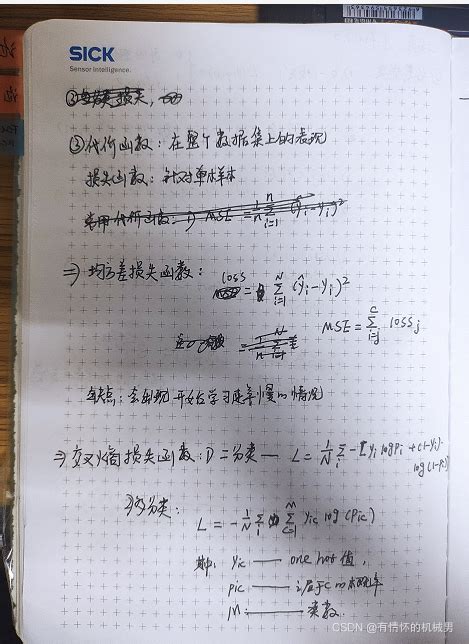 SICK
Sensor Intelligence.
③代价函数：在整个数据集上的表现
损失函数：针对单个样本
常用代价函数：① MSE = 1/n Σ_{i=1}^{n} (ŷi - yi)²
⇒ 均方差损失函数：loss = Σ_{i=1}^{N} (ŷi - yi)²
MSE = Σ_{i=j}^{C} loss j
缺点：会出现一开始学习速率慢的情况
⇒ 交叉熵损失函数：① 二分类 — L = 1/N Σ_i -[yi log pi + (1-yi)·
log(1-pi)]
②多分类：
L = - 1/N Σ_i Σ_{c=1}^{M} yic log(pic)
其中：yic —— one hot 值，
pic —— i属于c的概率
M —— 类数.
CSDN @有情怀的机械男